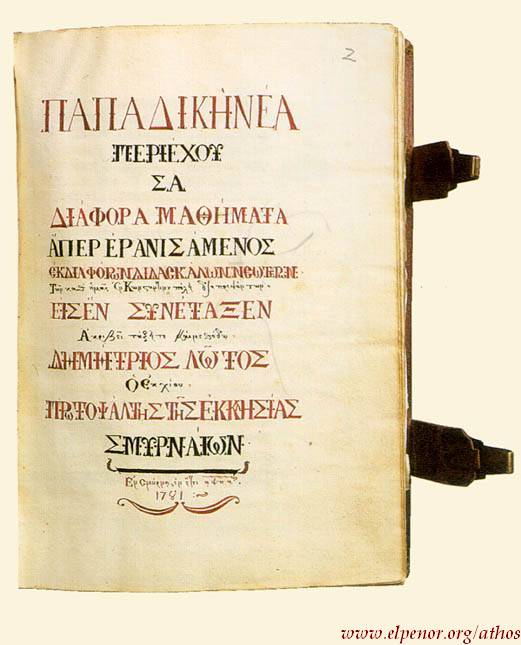 2
ΠΑΠΑΔΙΚῊ ΝΈΑ
ΠΕΡΙΈΧΟΥ
ΣΑ
ΔΙΆΦΟΡΑ ΜΑΘΉΜΑΤΑ
ἍΠΕΡ ἘΡΑΝΙΣΆΜΕΝΟΣ
ἘΚ ΔΙΑΦΌΡΩΝ ΔΙΔΑΣΚΆΛΩΝ
ΕἸΣ ἛΝ ΣΥΝΈΤΑΞΕΝ
ΔΗΜΉΤΡΙΟΣ ΛΩ͂ΤΟΣ
Ὁ ἐκ χίου.
ΠΡΩΤΟΨΆΛΤΗΣ ΤΗ͂Σ ἘΚΚΗΣΊΑΣ
ΣΜΥΡΝΑΊΩΝ
Ἐν σμύρνῃ, ἐν ἔτει
www.elpenor.org/athos